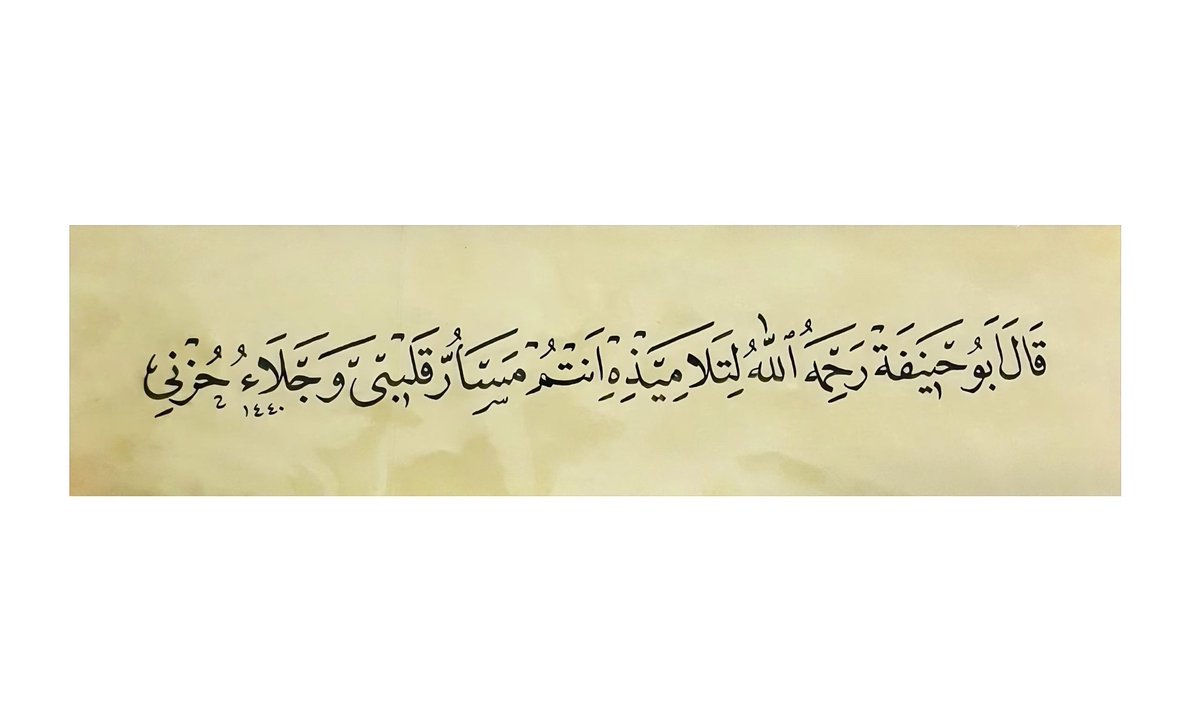 قَالَ أَبُو حَنِيفَةَ رَحِمَهُ ٱللّٰهُ لِتَلَامِيذِهِ اَنْتُمْ مَسَارُّ قَلْبِي وَجَلَاءُ حُزْنِي
١٤٤٠